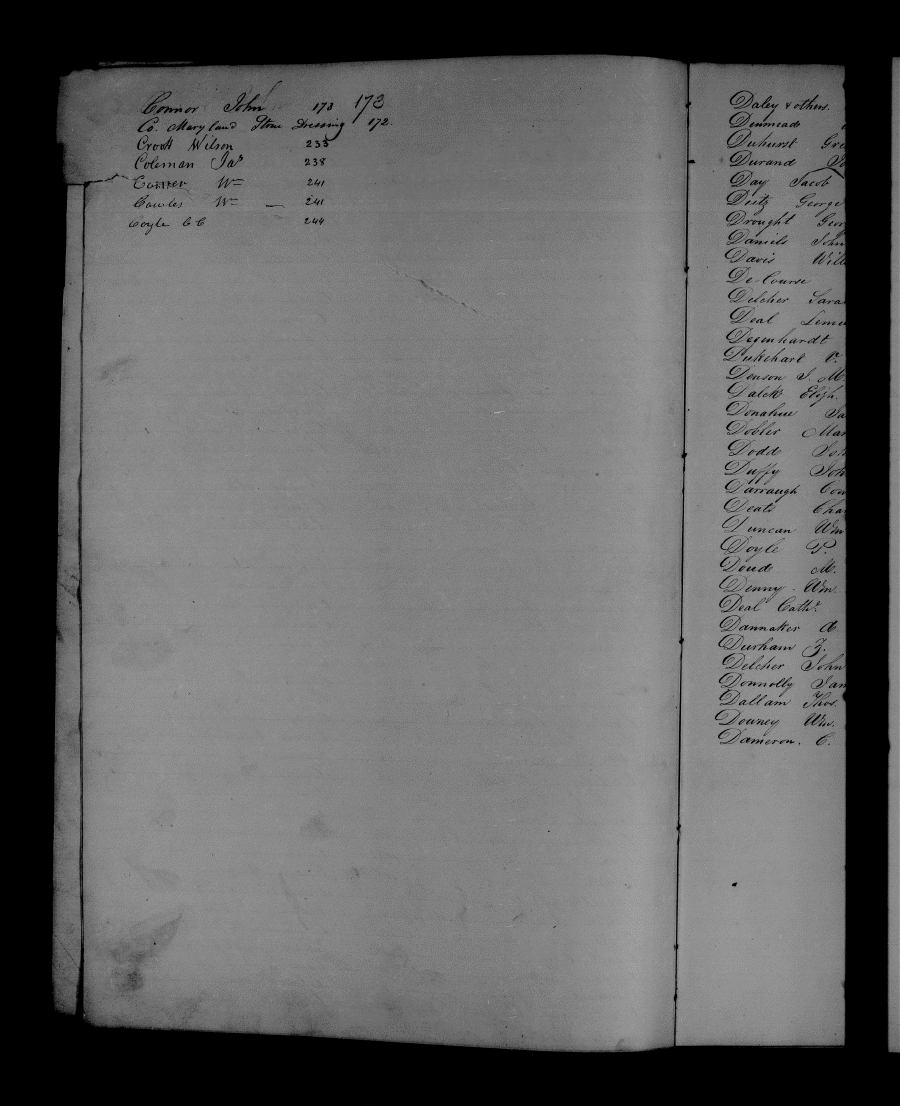 Connor John 173 173
Co. Maryland Stone Dressing 172.
Crook Wilson 235
Coleman Jas 238
Wm 241
Cowles Wm — 241
Coyle C C 244
Daley & others.
Denmead
Duhurst Gre
Durand
Day Jacob
Dietz George
Drought Geor
Daniels John
Davis Will
De-Course
Delcher Sara
Deal Lemu
Degenhardt
Dukehart V.
Denson J. M.
Dalck Elizh.
Donahue Ja
Dobler Mar
Dodd Joh
Duffy Joh
Darraugh Con
Deats Cha
Duncan Wm
Doyle P.
Doud M.
Denny - Wm.
Deal Cathr.
Dannaker A
Durham Z.
Delcher John
Donnolly Jam
Dallam Thos.
Downey Wm.
Dameron. C.